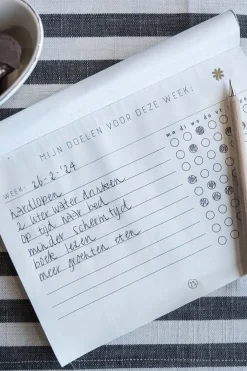 MIJN DOELEN VOOR DEZE WEEK:
WEEK: 26-2-'24
ma di wo do vr
hardlopen
2 liter water drinken
op tijd naar bed
minder schermtijd
boek lezen
meer groenten eten